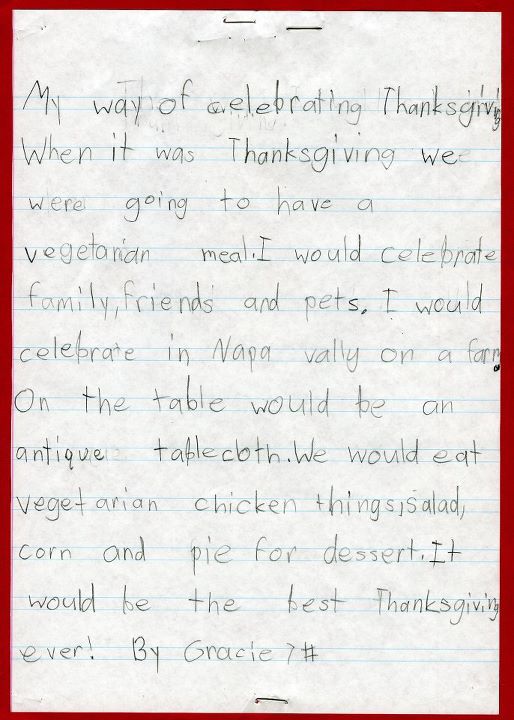 My way of celebrating Thanksgiving
When it was Thanksgiving wee
were going to have a
vegetarian meal. I would celebrate
family, friends and pets. I would
celebrate in Napa vally on a farm.
On the table would be an
antique tablecloth. We would eat
vegetarian chicken things, salad,
corn and pie for dessert. It
would be the best Thanksgiving
ever! By Gracie 7#